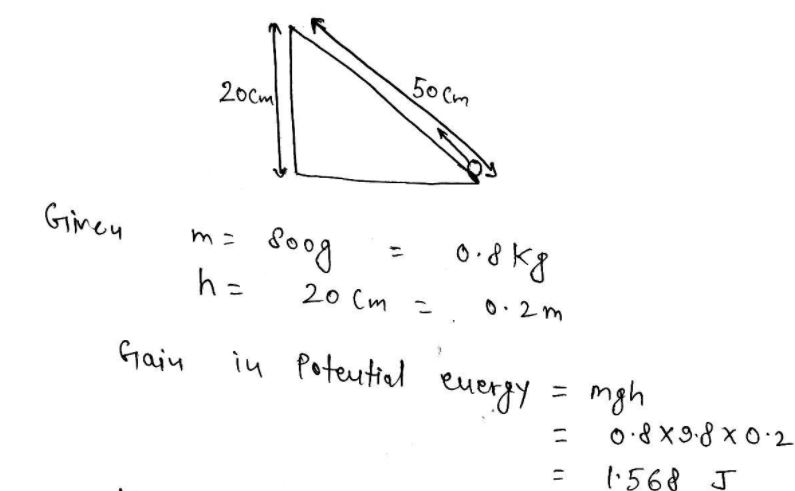 20cm
50cm
Given m = 800g = 0.8 Kg
h = 20 cm = 0.2 m
Gain in Potential energy = mgh
= 0.8 X 9.8 X 0.2
= 1.568 J